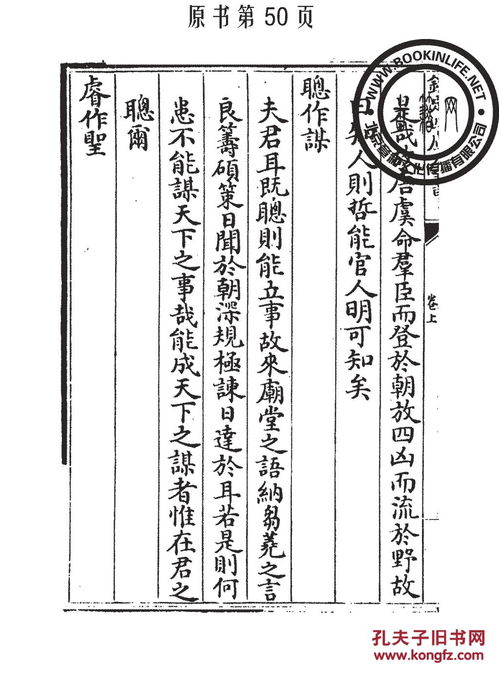 原书第50页
WWW.BOOKINLIFE.NET
网
卷上
唐虞命羣臣而登於朝放四凶而流於野故
曰知人則哲能官人明可知矣
聰作謀
夫君耳既聰則能立事故來廟堂之語納芻蕘之言
良籌碩策日聞於朝深規極諫日達於耳若是則何
患不能謀天下之事哉能成天下之謀者惟在君之
聰爾
睿作聖
孔夫子旧书网
www.kongfz.com